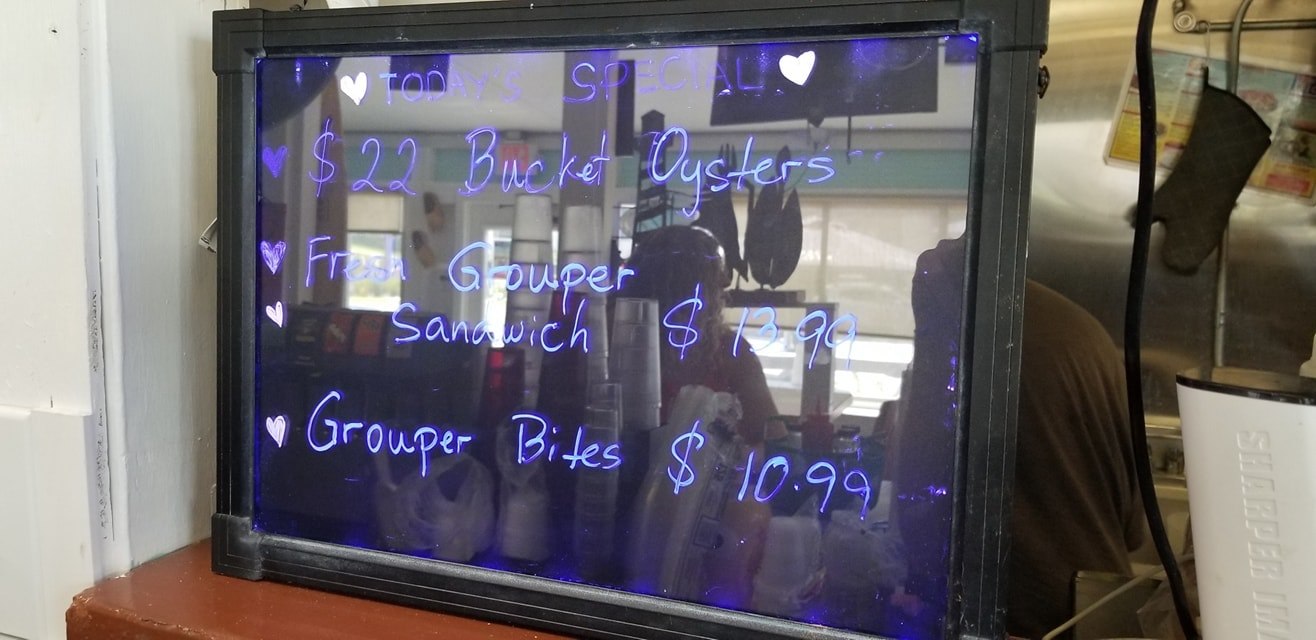 TODAY'S SPECIAL
$22 Bucket Oysters
Fresh Grouper
Sandwich $13.99
Grouper Bites $10.99
SHARPER IM